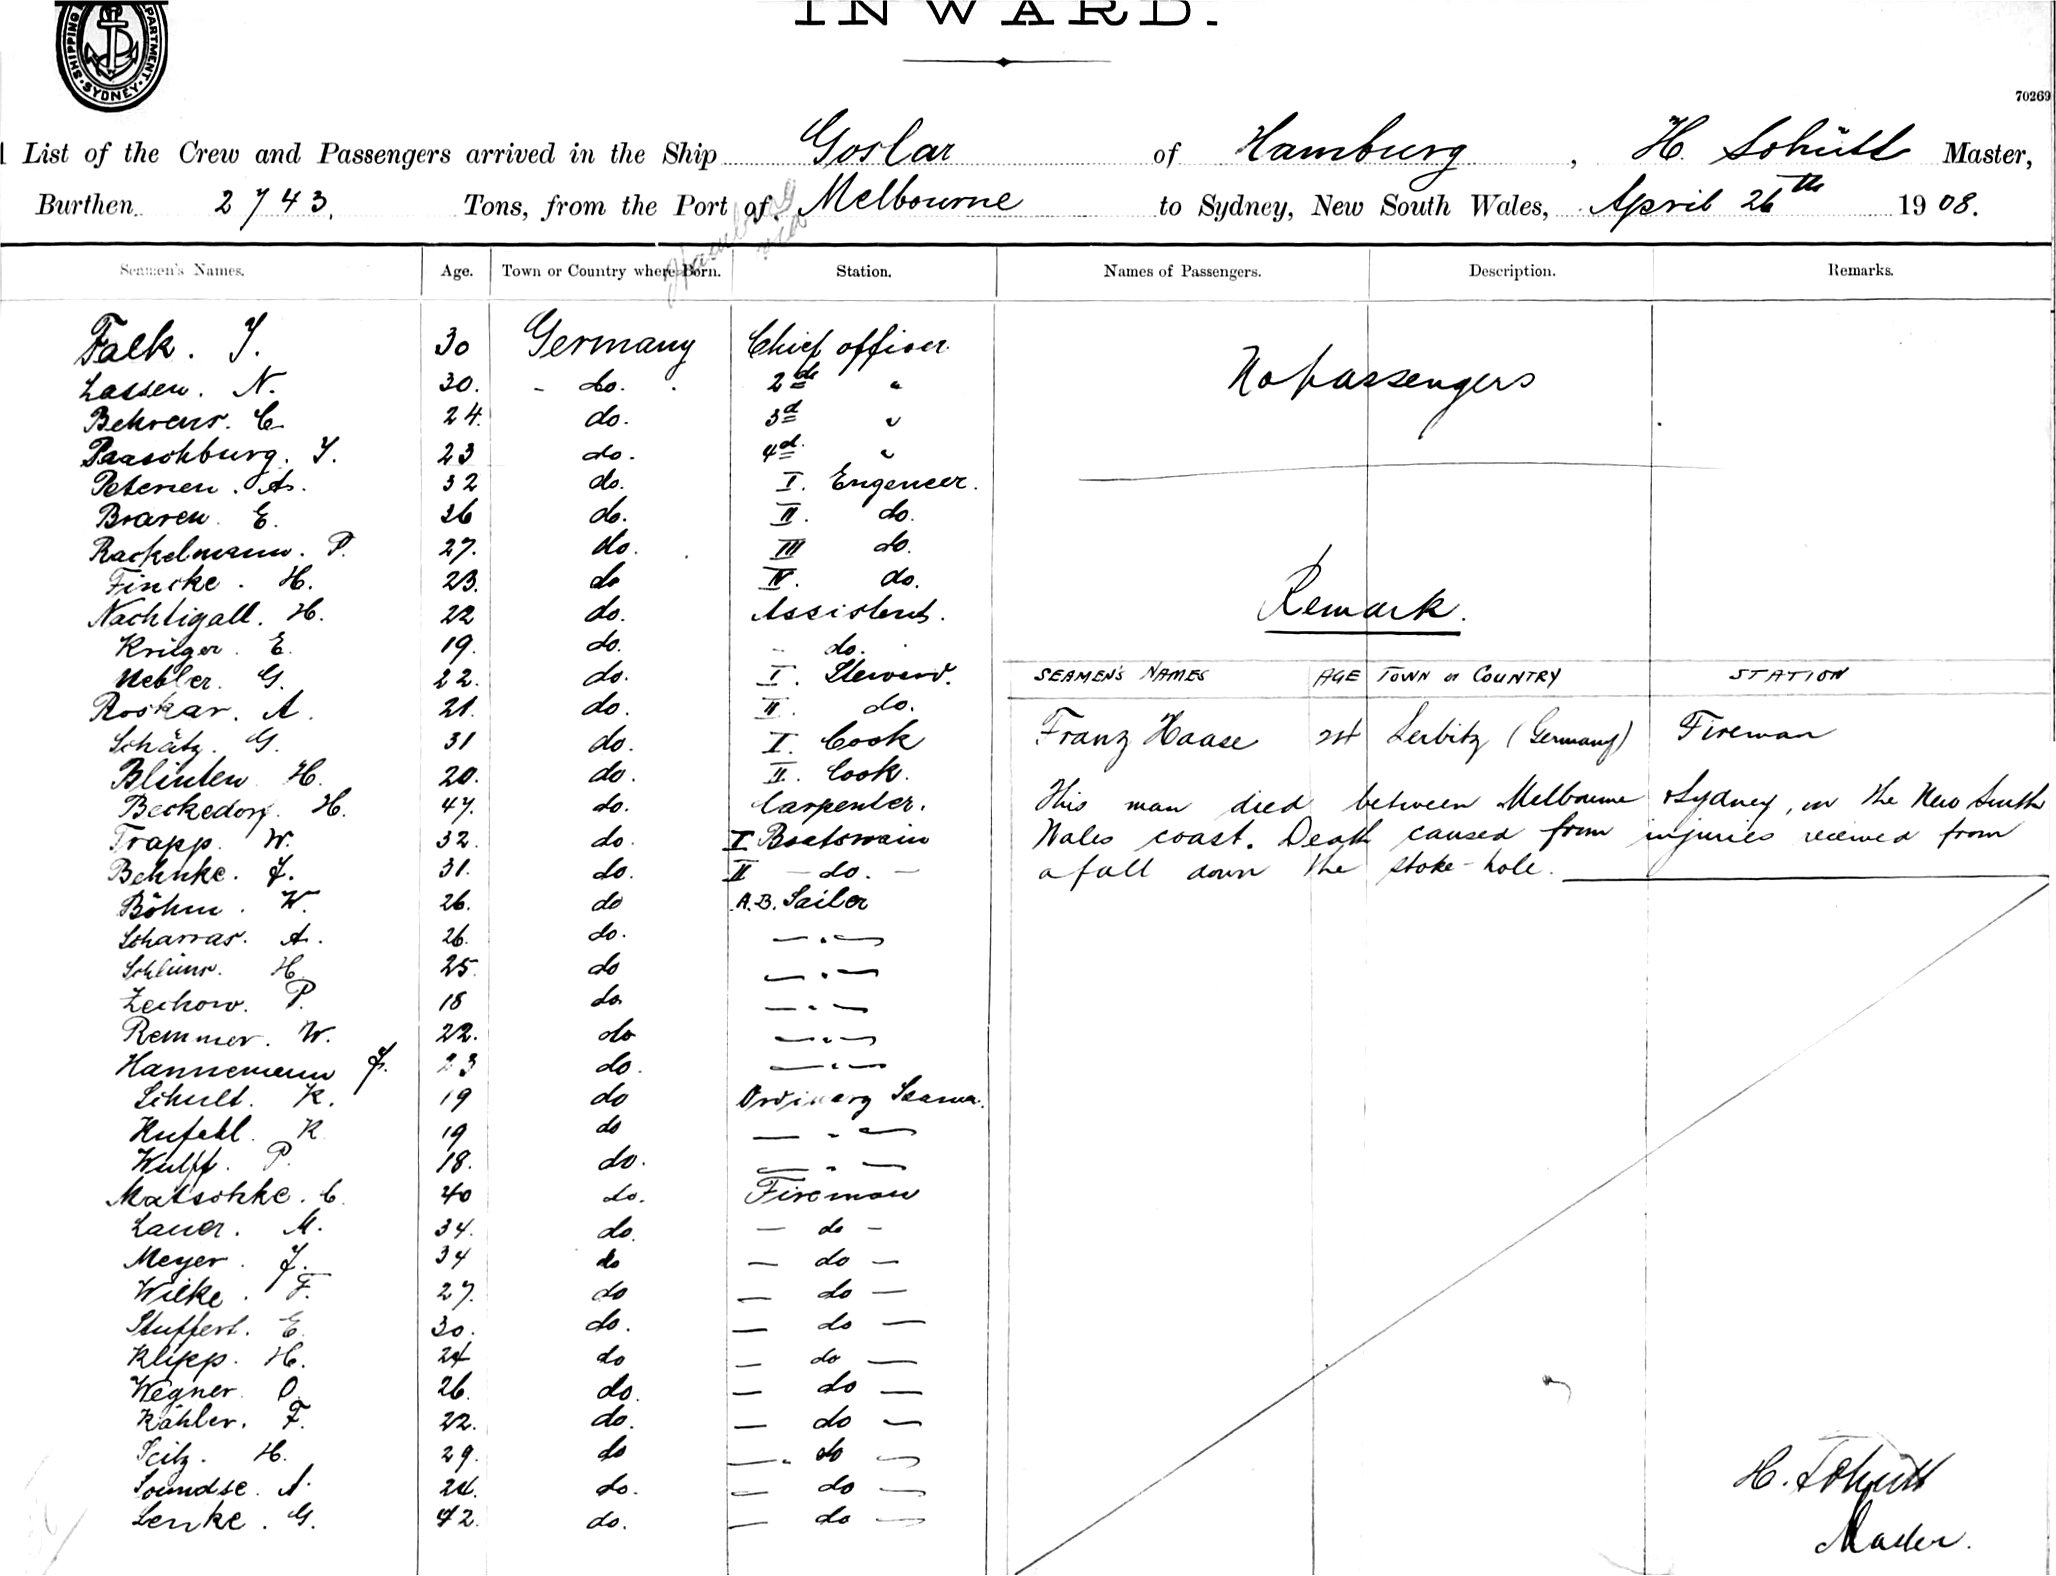 SHIPPING DEPARTMENT. SYDNEY.
INWARD.
70269
List of the Crew and Passengers arrived in the Ship Goslar of Hamburg, H. Schütt Master,
Burthen 2743. Tons, from the Port of Hamburg via Melbourne to Sydney, New South Wales, April 26th 1908.
Seamen's Names. Age. Town or Country where Born. Station. Names of Passengers. Description. Remarks.
Falk. J. 30 Germany Chief officer
Lassen. N. 30. - do. 2nd "
No passengers
Behrens. C. 24. do. 3d "
Paaschburg. J. 23 do. 4d. "
Petersen. A. 32 do. I. Engeneer.
Braren. E. 26 do. II. do.
Rackelmann. P. 27. do. III do.
Fincke. H. 23. do IV. do.
Nachtigall. H. 22 do. Assistent.
Remark.
Krüger. E. 19. do. - do.
Nebler. G. 22. do. I. Steward.
SEAMEN'S NAMES AGE TOWN or COUNTRY STATION
Roskar. A. 21. do. II. do.
Schätz. G. 31 do. I. Cook
Franz Haase 24 Leibitz (Germany) Fireman
Blinten H. 20. do. II. Cook.
Beckedorf. H. 47. do. Carpenter.
This man died between Melbourne & Sydney, on the New South
Trapp. W. 32. do. I Boatswain
Wales coast. Death caused from injuries received from
Behnke. J. 31. do. II - do. -
a fall down the stoke-hole.
Böhm. W. 26. do A.B. Sailor
Scharras. A. 26. do. — " —
Schlüns. H. 25. do — " —
Zechow. P. 18 do — " —
Remmer. W. 22. do — " —
Hannemann J. 23 do. — " —
Schult. K. 19 do Ordinary Seaman.
Hufahl. K 19 do — " —
Wulff. P. 18. do. — " —
Matschke. C. 40 do. Fireman
Lauer. M. 34. do. — do —
Meyer. J. 34 do — do —
Wilke. F. 27. do — do —
Stuffert. E. 30. do. — do —
Klipp. H. 24 do — do —
Wegner. O. 26. do. — do —
Kähler. F. 22. do. — do —
Seitz. H. 29. do — do —
H. Schütt
Soundse. A. 24. do. — do —
Lenke. G. 42. do. — do —
Master.